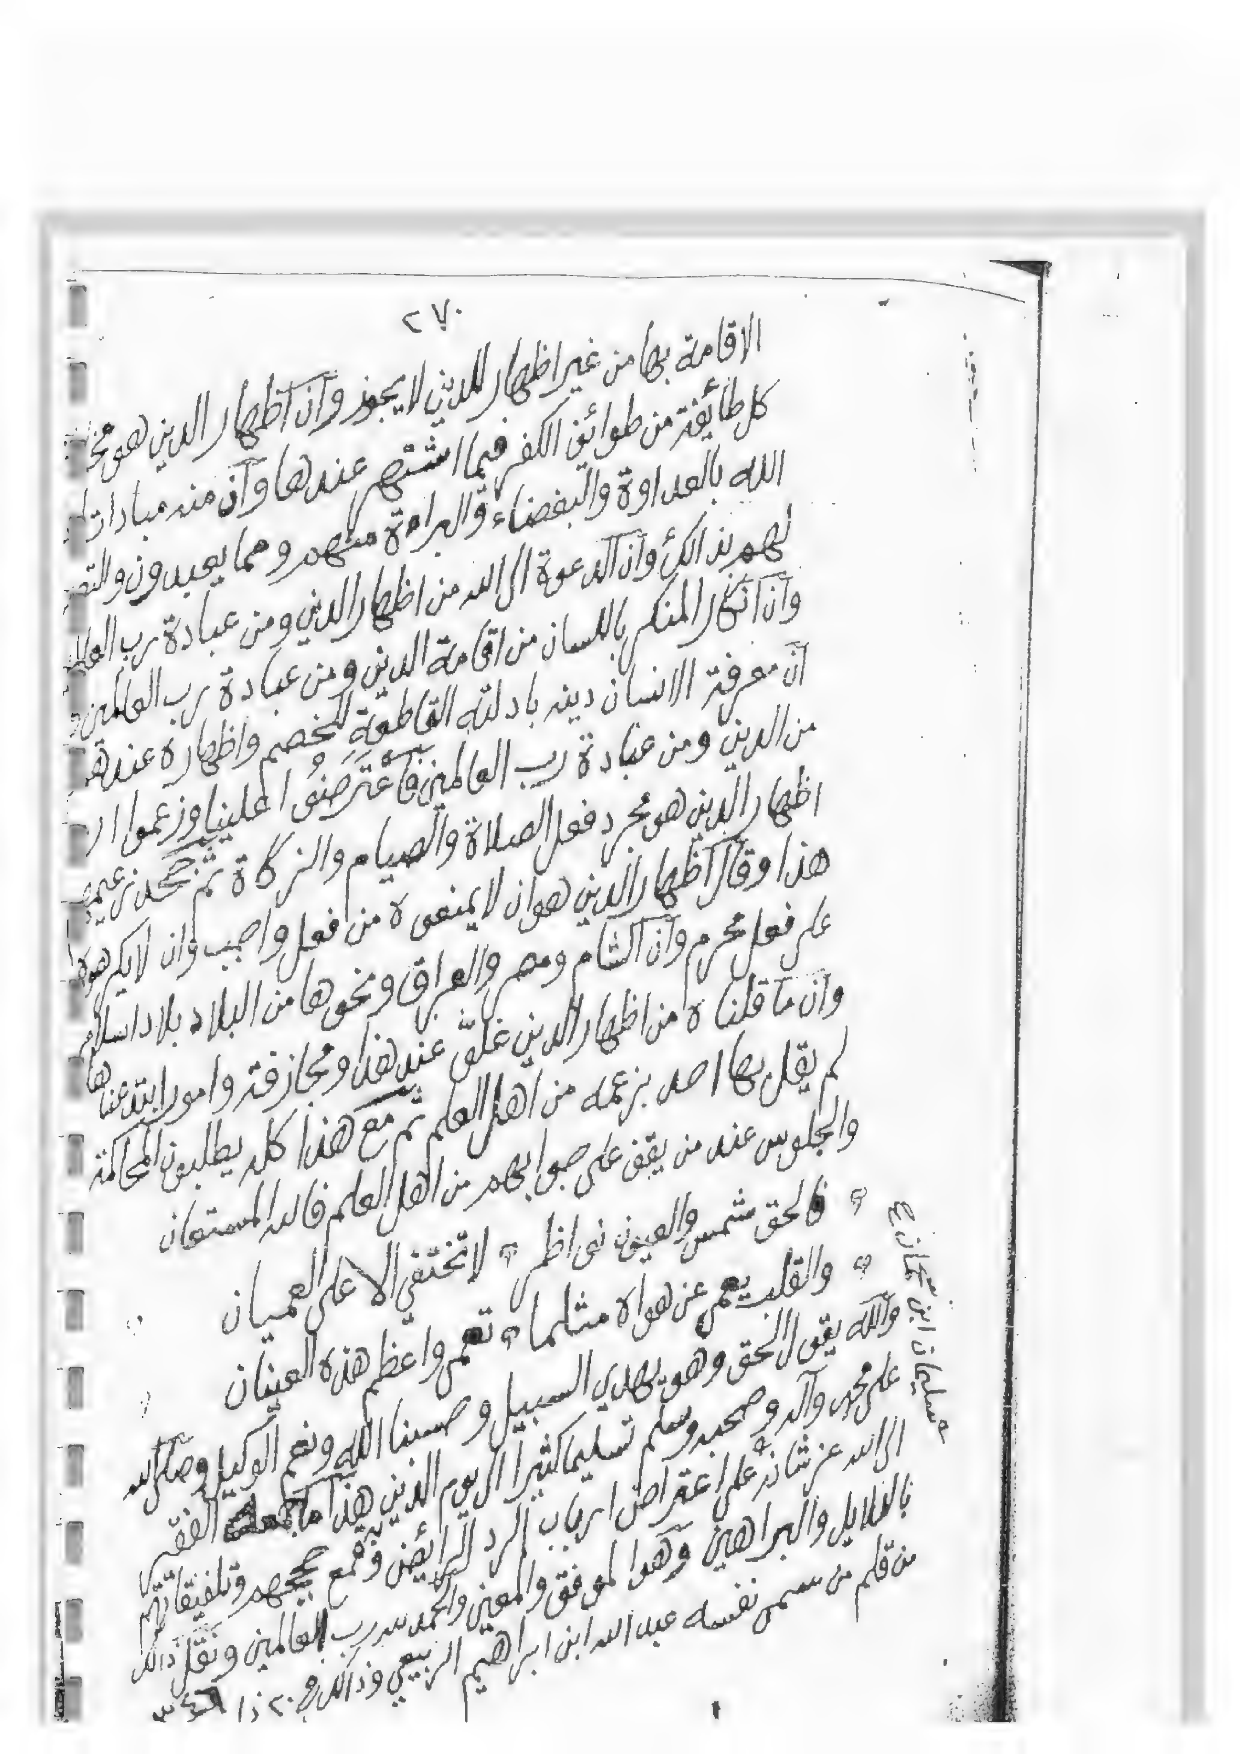 ٢٧٠
الاقامة بها من غير اظهار للدين لا يجوز وان اظهار الدين هو
كل طائفة من طوائف الكفر فيما اشتهر عندها وان منه مباداة
الله بالعداوة والبغضاء والبراءة منهم ومما يعبدون
لهم بذالك وان الدعوة الى الله من اظهار الدين ومن عبادة رب
وان انكار المنكر باللسان من اقامة الدين ومن عبادة رب العالمين
ان معرفة الانسان دينه بادلته القاطعة للخصم واظهاره عندهم
من الدين ومن عبادة رب العالمين فاعْتَرَضُوا علينا وزعموا
اظهار الدين هو مجرد فعل الصلاة والصيام والزكاة ثم
هذا وقال اظهار الدين هو ان لا يمنعوه من فعل واجب وان لا يكرهوه
على فعل محرم وان الشام ومصر والعراق ونحوها من البلاد بلاد اسلام
وان ما قلناه من اظهار الدين غلوّ عند هذا ومجازفة وامور ابتدعناها
لم يقل بها احد بزعمه من اهل العلم ثم مع هذا كله يطلبون المحاكمة
والجلوس عند من يقف على صوابهم من اهل العلم فالله المستعان
فالحق شمس والعيون نواظر لا تختفي الا على العميان
والقلب يعمى عن هواه مثلما تعمى واعظم هذه العينان
والله يقول الحق وهو يهدي السبيل وحسبنا الله ونعم الوكيل وصلى الله
على محمد وآله وصحبه وسلم تسليما كثيرا الى يوم الدين هذا ما الفقير
الى الله عز شأنه على اعتراض ارباب الرد وقمع حججهم وتلفيقاتهم
بالدلايل والبراهين وهو الموفق والمعين والحمد لله رب العالمين ونقل ذالك
من قلم من سمى نفسه عبد الله ابن ابراهيم الربيعي وذالك في ٢٠ ذا
سليمان ابن سحمان